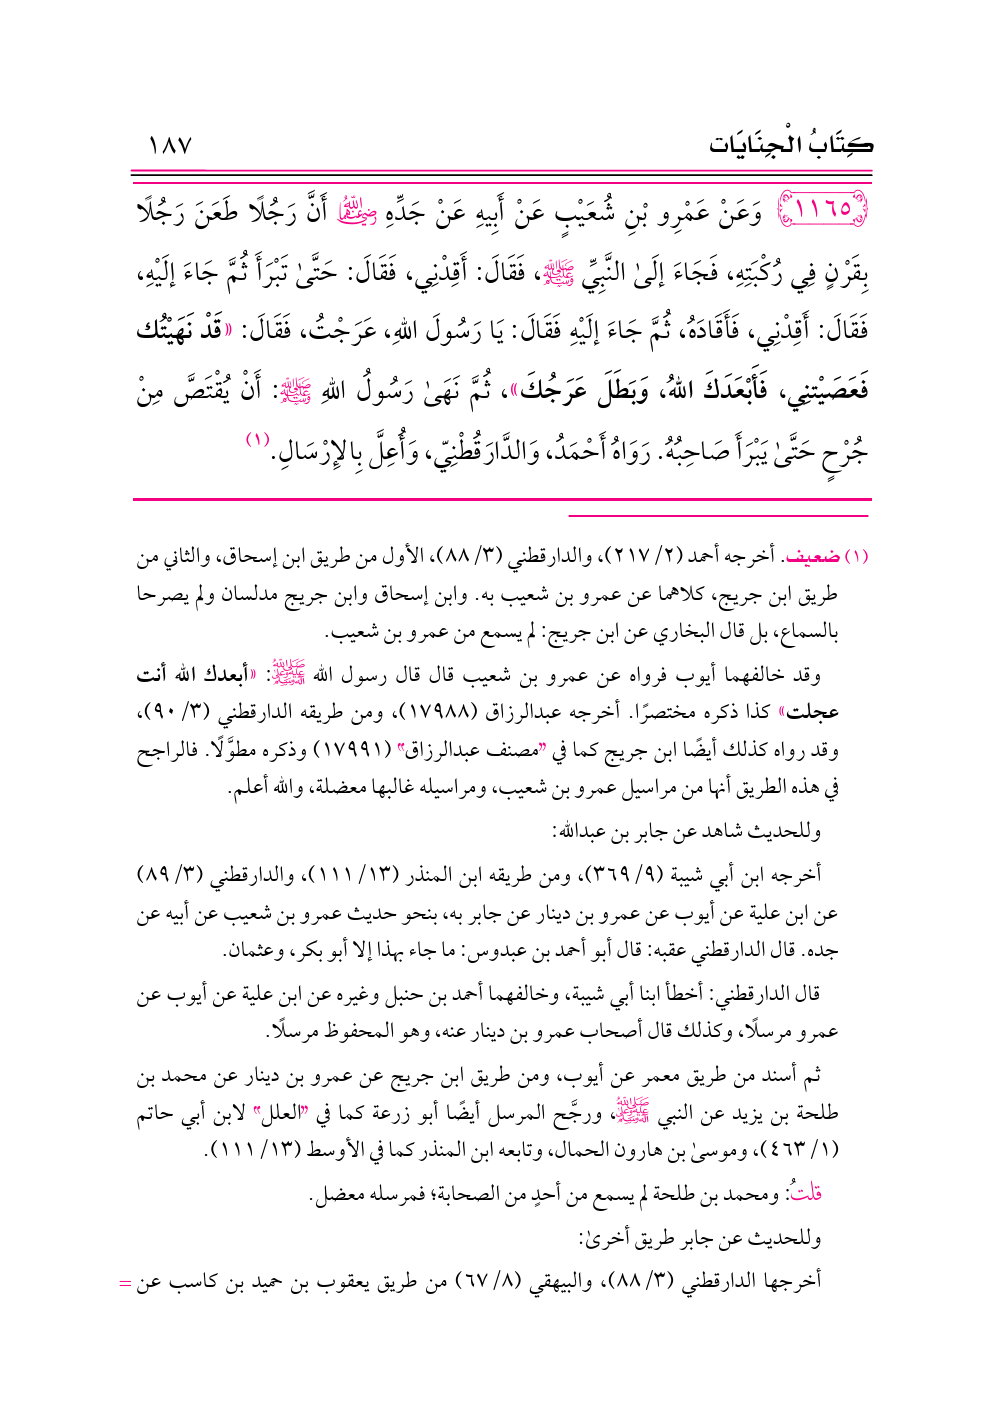 كِتَابُ الْجِنَايَات ١٨٧
١١٦٥ وَعَنْ عَمْرِو بْنِ شُعَيْبٍ عَنْ أَبِيهِ عَنْ جَدِّهِ رضي الله عنهما أَنَّ رَجُلًا طَعَنَ رَجُلًا
بِقَرْنٍ فِي رُكْبَتِهِ، فَجَاءَ إلَىٰ النَّبِيِّ ﷺ، فَقَالَ: أَقِدْنِي، فَقَالَ: حَتَّىٰ تَبْرَأَ ثُمَّ جَاءَ إلَيْهِ،
فَقَالَ: أَقِدْنِي، فَأَقَادَهُ، ثُمَّ جَاءَ إلَيْهِ فَقَالَ: يَا رَسُولَ اللهِ، عَرَجْتُ، فَقَالَ: «قَدْ نَهَيْتُك
فَعَصَيْتنِي، فَأَبْعَدَكَ اللهُ، وَبَطَلَ عَرَجُكَ»، ثُمَّ نَهَىٰ رَسُولُ اللهِ ﷺ: أَنْ يُقْتَصَّ مِنْ
جُرْحٍ حَتَّىٰ يَبْرَأَ صَاحِبُهُ. رَوَاهُ أَحْمَدُ، وَالدَّارَقُطْنِيّ، وَأُعِلَّ بِالإِرْسَالِ.(١)
(١) ضعيف. أخرجه أحمد (٢/ ٢١٧)، والدارقطني (٣/ ٨٨)، الأول من طريق ابن إسحاق، والثاني من
طريق ابن جريج، كلاهما عن عمرو بن شعيب به. وابن إسحاق وابن جريج مدلسان ولم يصرحا
بالسماع، بل قال البخاري عن ابن جريج: لم يسمع من عمرو بن شعيب.
وقد خالفهما أيوب فرواه عن عمرو بن شعيب قال قال رسول الله ﷺ: «أبعدك الله أنت
عجلت» كذا ذكره مختصرًا. أخرجه عبدالرزاق (١٧٩٨٨)، ومن طريقه الدارقطني (٣/ ٩٠)،
وقد رواه كذلك أيضًا ابن جريج كما في "مصنف عبدالرزاق" (١٧٩٩١) وذكره مطوَّلًا. فالراجح
في هذه الطريق أنها من مراسيل عمرو بن شعيب، ومراسيله غالبها معضلة، والله أعلم.
وللحديث شاهد عن جابر بن عبدالله:
أخرجه ابن أبي شيبة (٩/ ٣٦٩)، ومن طريقه ابن المنذر (١٣/ ١١١)، والدارقطني (٣/ ٨٩)
عن ابن علية عن أيوب عن عمرو بن دينار عن جابر به، بنحو حديث عمرو بن شعيب عن أبيه عن
جده. قال الدارقطني عقبه: قال أبو أحمد بن عبدوس: ما جاء بهذا إلا أبو بكر، وعثمان.
قال الدارقطني: أخطأ ابنا أبي شيبة، وخالفهما أحمد بن حنبل وغيره عن ابن علية عن أيوب عن
عمرو مرسلًا، وكذلك قال أصحاب عمرو بن دينار عنه، وهو المحفوظ مرسلًا.
ثم أسند من طريق معمر عن أيوب، ومن طريق ابن جريج عن عمرو بن دينار عن محمد بن
طلحة بن يزيد عن النبي ﷺ، ورجَّح المرسل أيضًا أبو زرعة كما في "العلل" لابن أبي حاتم
(١/ ٤٦٣)، وموسىٰ بن هارون الحمال، وتابعه ابن المنذر كما في الأوسط (١٣/ ١١١).
قلتُ: ومحمد بن طلحة لم يسمع من أحدٍ من الصحابة؛ فمرسله معضل.
وللحديث عن جابر طريق أخرىٰ:
أخرجها الدارقطني (٣/ ٨٨)، والبيهقي (٨/ ٦٧) من طريق يعقوب بن حميد بن كاسب عن =